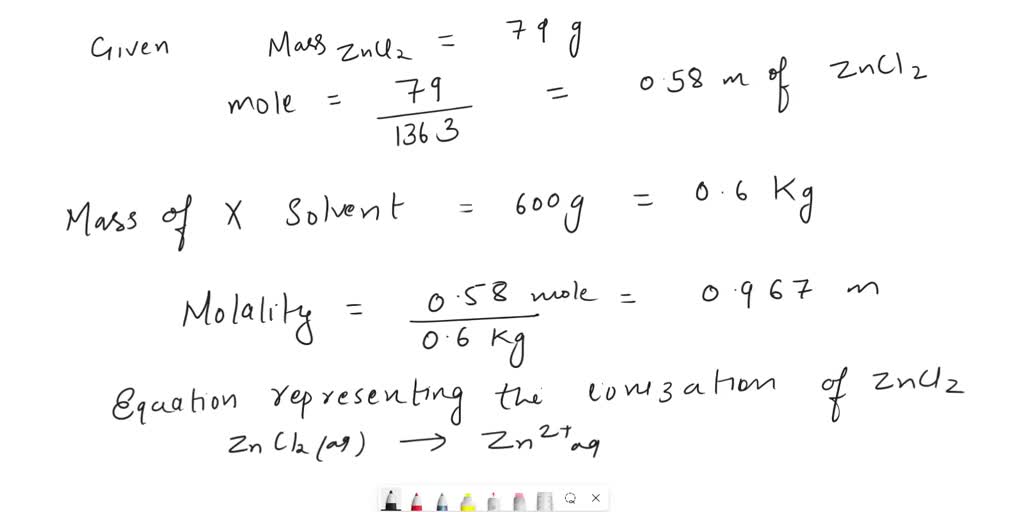 Given Mass ZnCl2 = 79 g
mole = 79 / 136 3 = 0.58 m of ZnCl2
Mass of X Solvent = 600g = 0.6 Kg
Molality = 0.58 mole / 0.6 Kg = 0.967 m
Equation representing the ionization of ZnCl2
ZnCl2 (aq) → Zn2+ aq